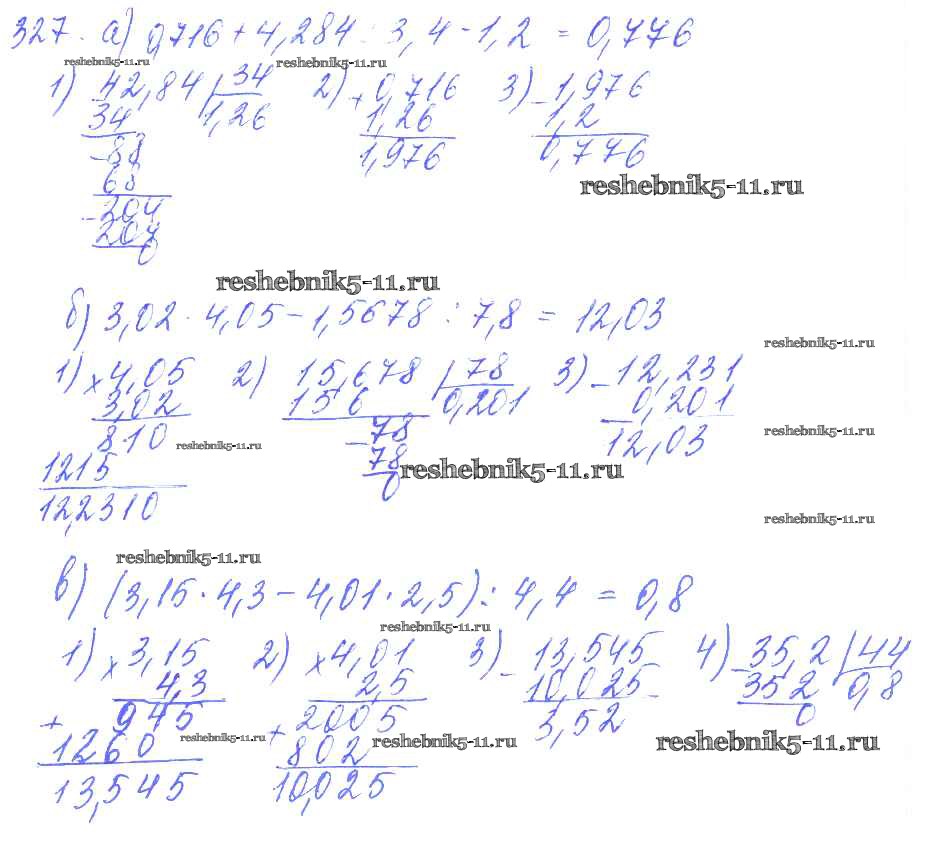 327. а) 0,716 + 4,284 : 3,4 - 1,2 = 0,776
reshebnik5-11.ru reshebnik5-11.ru
1) 42,84 34 2) + 0,716 3) - 1,976
34 1,26 1,26 1,2
- 88 1,976 0,776
68
reshebnik5-11.ru
- 204
204
0
reshebnik5-11.ru
б) 3,02 · 4,05 - 1,5678 : 7,8 = 12,03
reshebnik5-11.ru
1) × 4,05 2) 15,678 78 3) - 12,231
3,02 156 0,201 0,201
810 - 78 12,03
reshebnik5-11.ru reshebnik5-11.ru
1215 78
reshebnik5-11.ru
0
12,2310
reshebnik5-11.ru
reshebnik5-11.ru
в) (3,15 · 4,3 - 4,01 · 2,5) : 4,4 = 0,8
reshebnik5-11.ru
1) × 3,15 2) × 4,01 3) - 13,545 4) - 35,2 44
4,3 2,5 10,025 352 0,8
+ 945 + 2005 3,52 0
reshebnik5-11.ru reshebnik5-11.ru reshebnik5-11.ru
1260 802
13,545 10,025